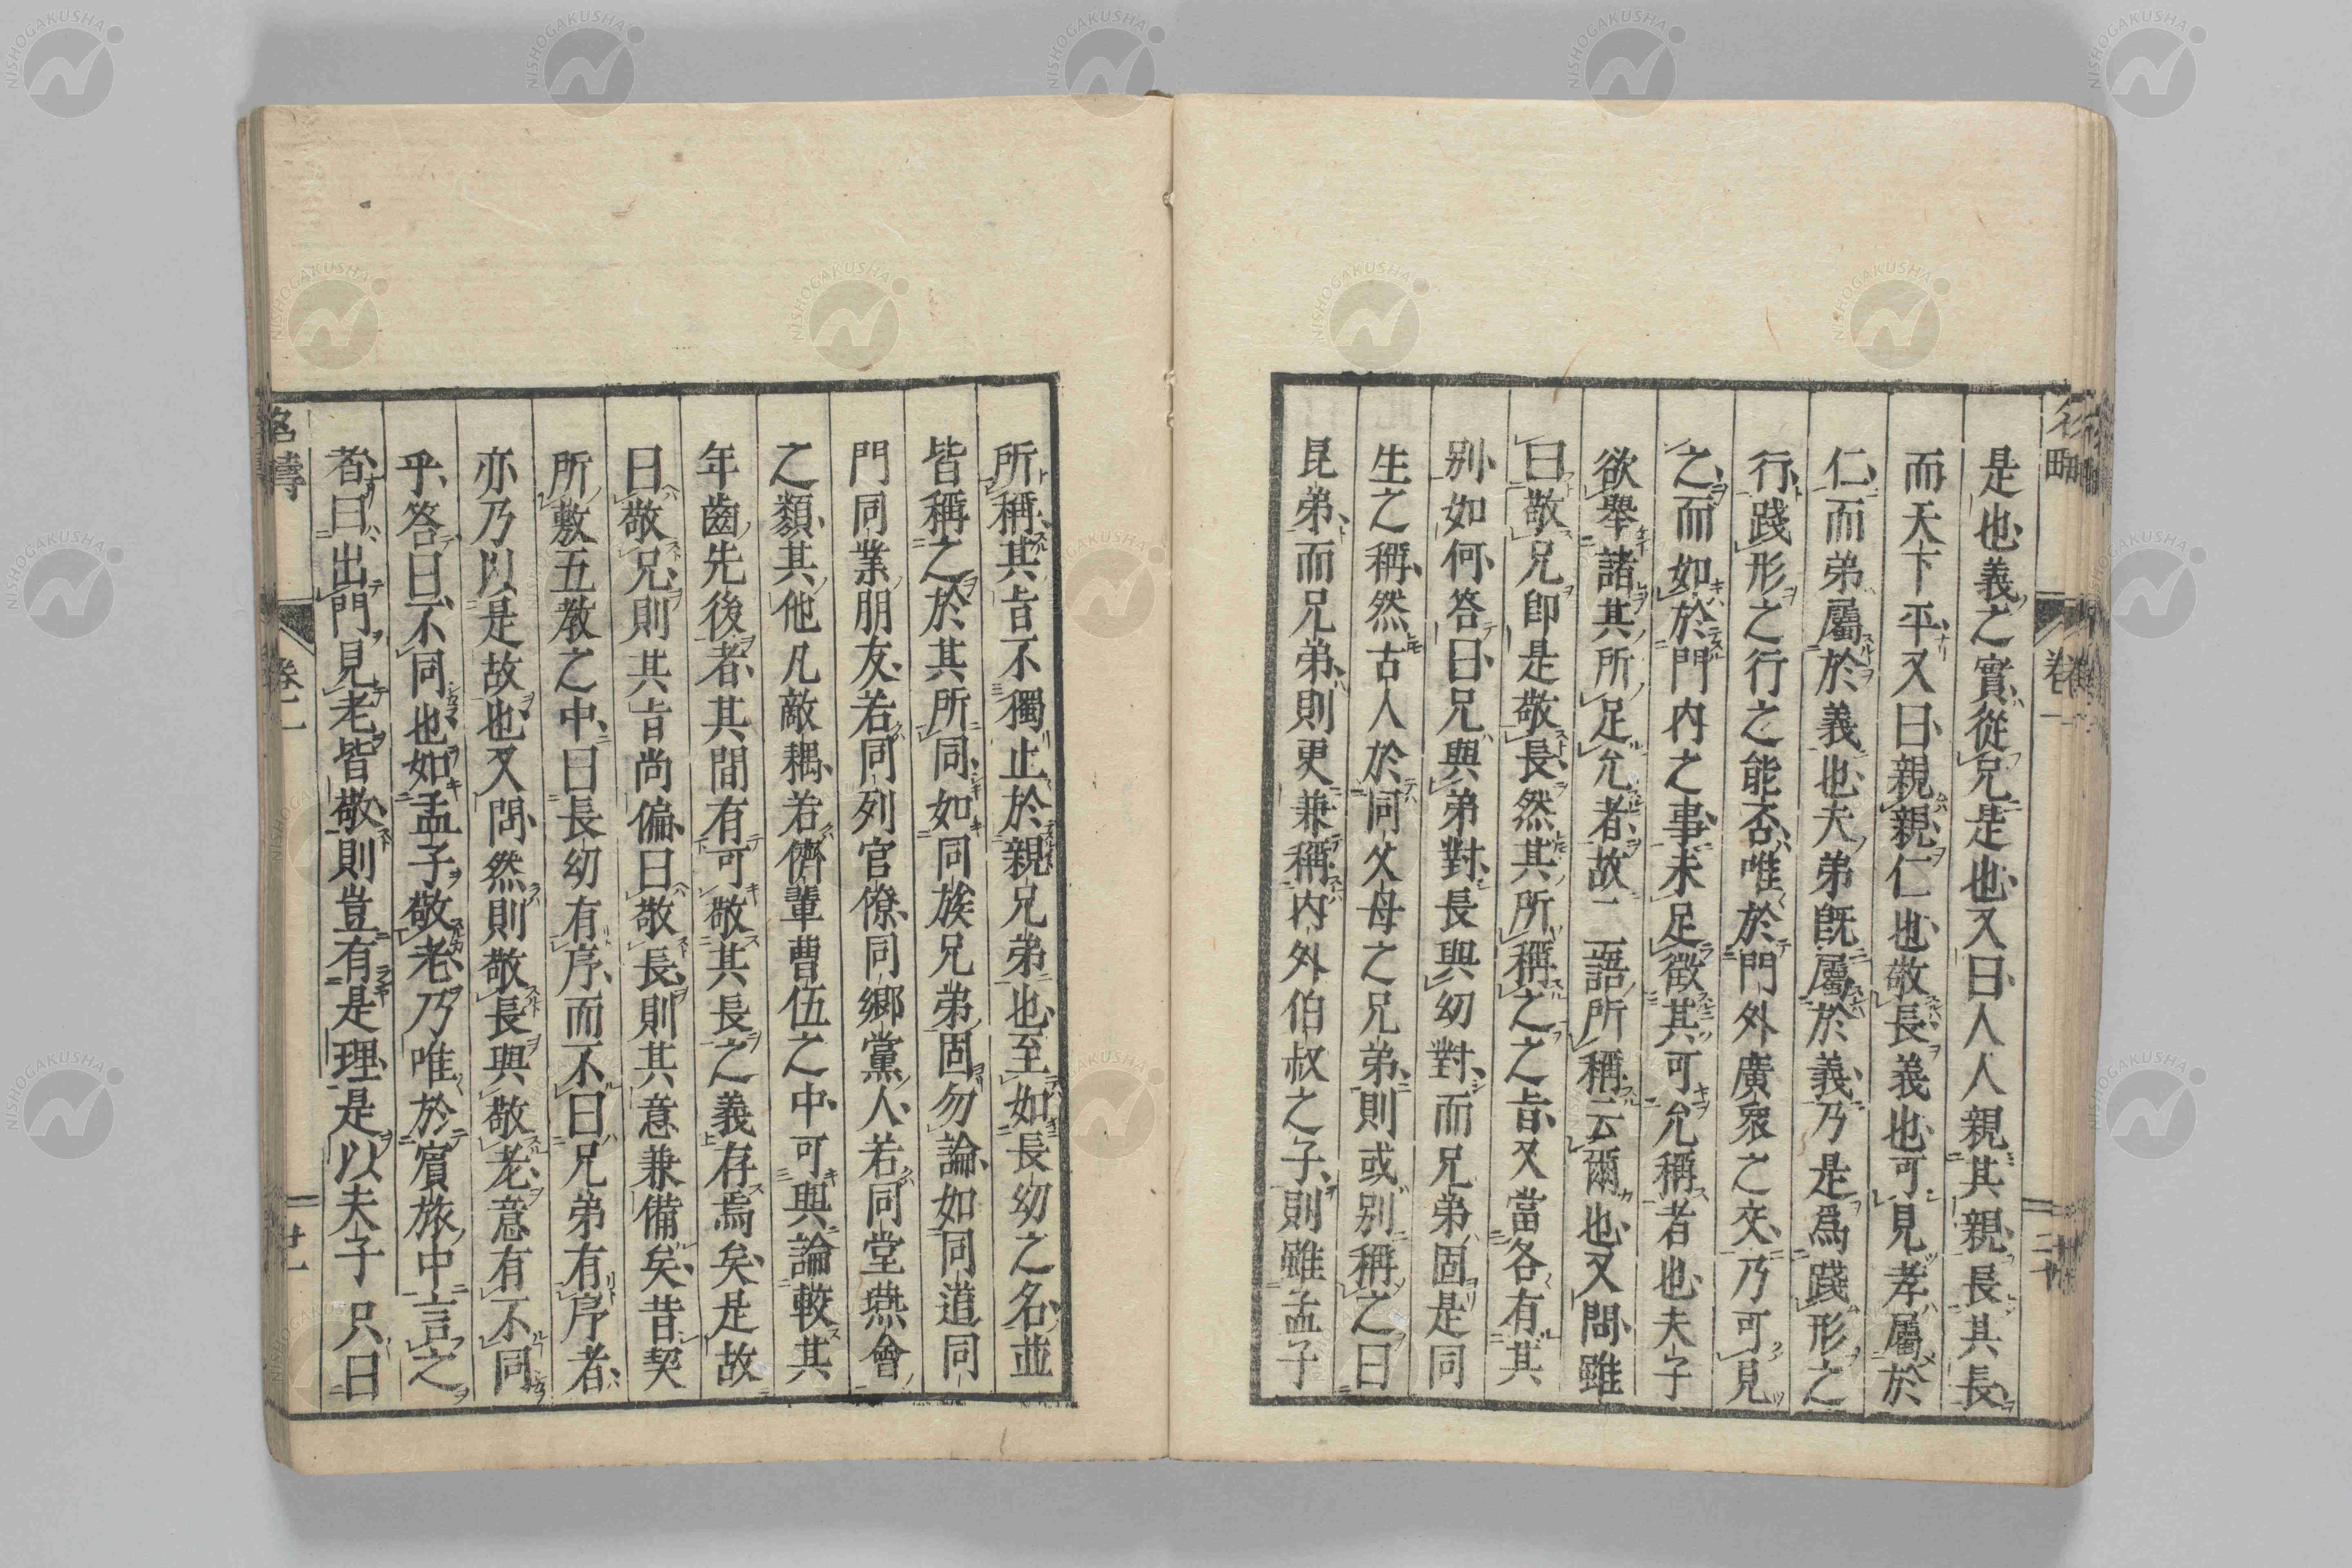 是也義之實從兄是也又曰人人親其親長其長
而天下平又曰親親仁也敬長義也可見孝屬於
仁而弟屬於義也夫弟既屬於義乃是爲踐形之
行踐形之行之能否唯於門外廣衆之交乃可見
之而如於門内之事未足徵其可允稱者也夫子
欲舉諸其所足允者故二語所稱云爾也又問雖
曰敬兄卽是敬長然其所稱之之旨又當各有其
别如何答曰兄與弟對長與幼對而兄弟固是同
生之稱然古人於同父母之兄弟則或别稱之曰
昆弟而兄弟則更兼稱内外伯叔之子則雖孟子
所稱其旨不獨止於親兄弟也至如長幼之名並
皆稱之於其所同如同族兄弟固勿論如同道同
門同業朋友若同列官僚同鄉黨人若同堂燕會
之類其他凡敵耦若儕輩曹伍之中可與論較其
年齒先後者其間有可敬其長之義存焉矣是故
曰敬兄則其旨尚偏曰敬長則其意兼備矣昔契
所敷五教之中曰長幼有序而不曰兄弟有序者
亦乃以是故也又問然則敬長與敬老意有不同
乎答曰不同也如孟子敬老乃唯於賓旅中言之
者曰出門見老皆敬則豈有是理是以夫子只曰
卷二
廿一
NISHOGAKUSHA